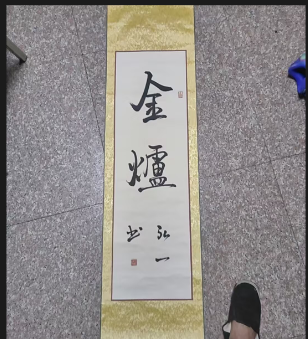 金爐
弘一
书